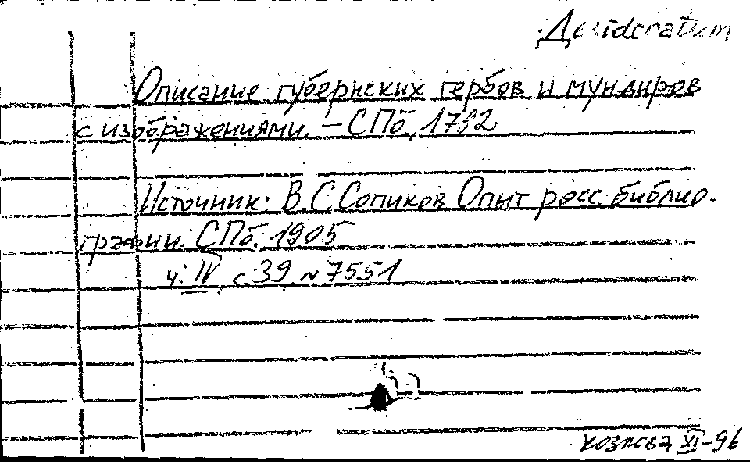 Дезidcratum
Описание губернских гербов и мундиров
с изображениями. – СПб, 1792
Источник: В.С.Сопиков Опыт росс. библио-
графии СПб, 1905
ч. IV с 39 № 7551
Козлова XI-96